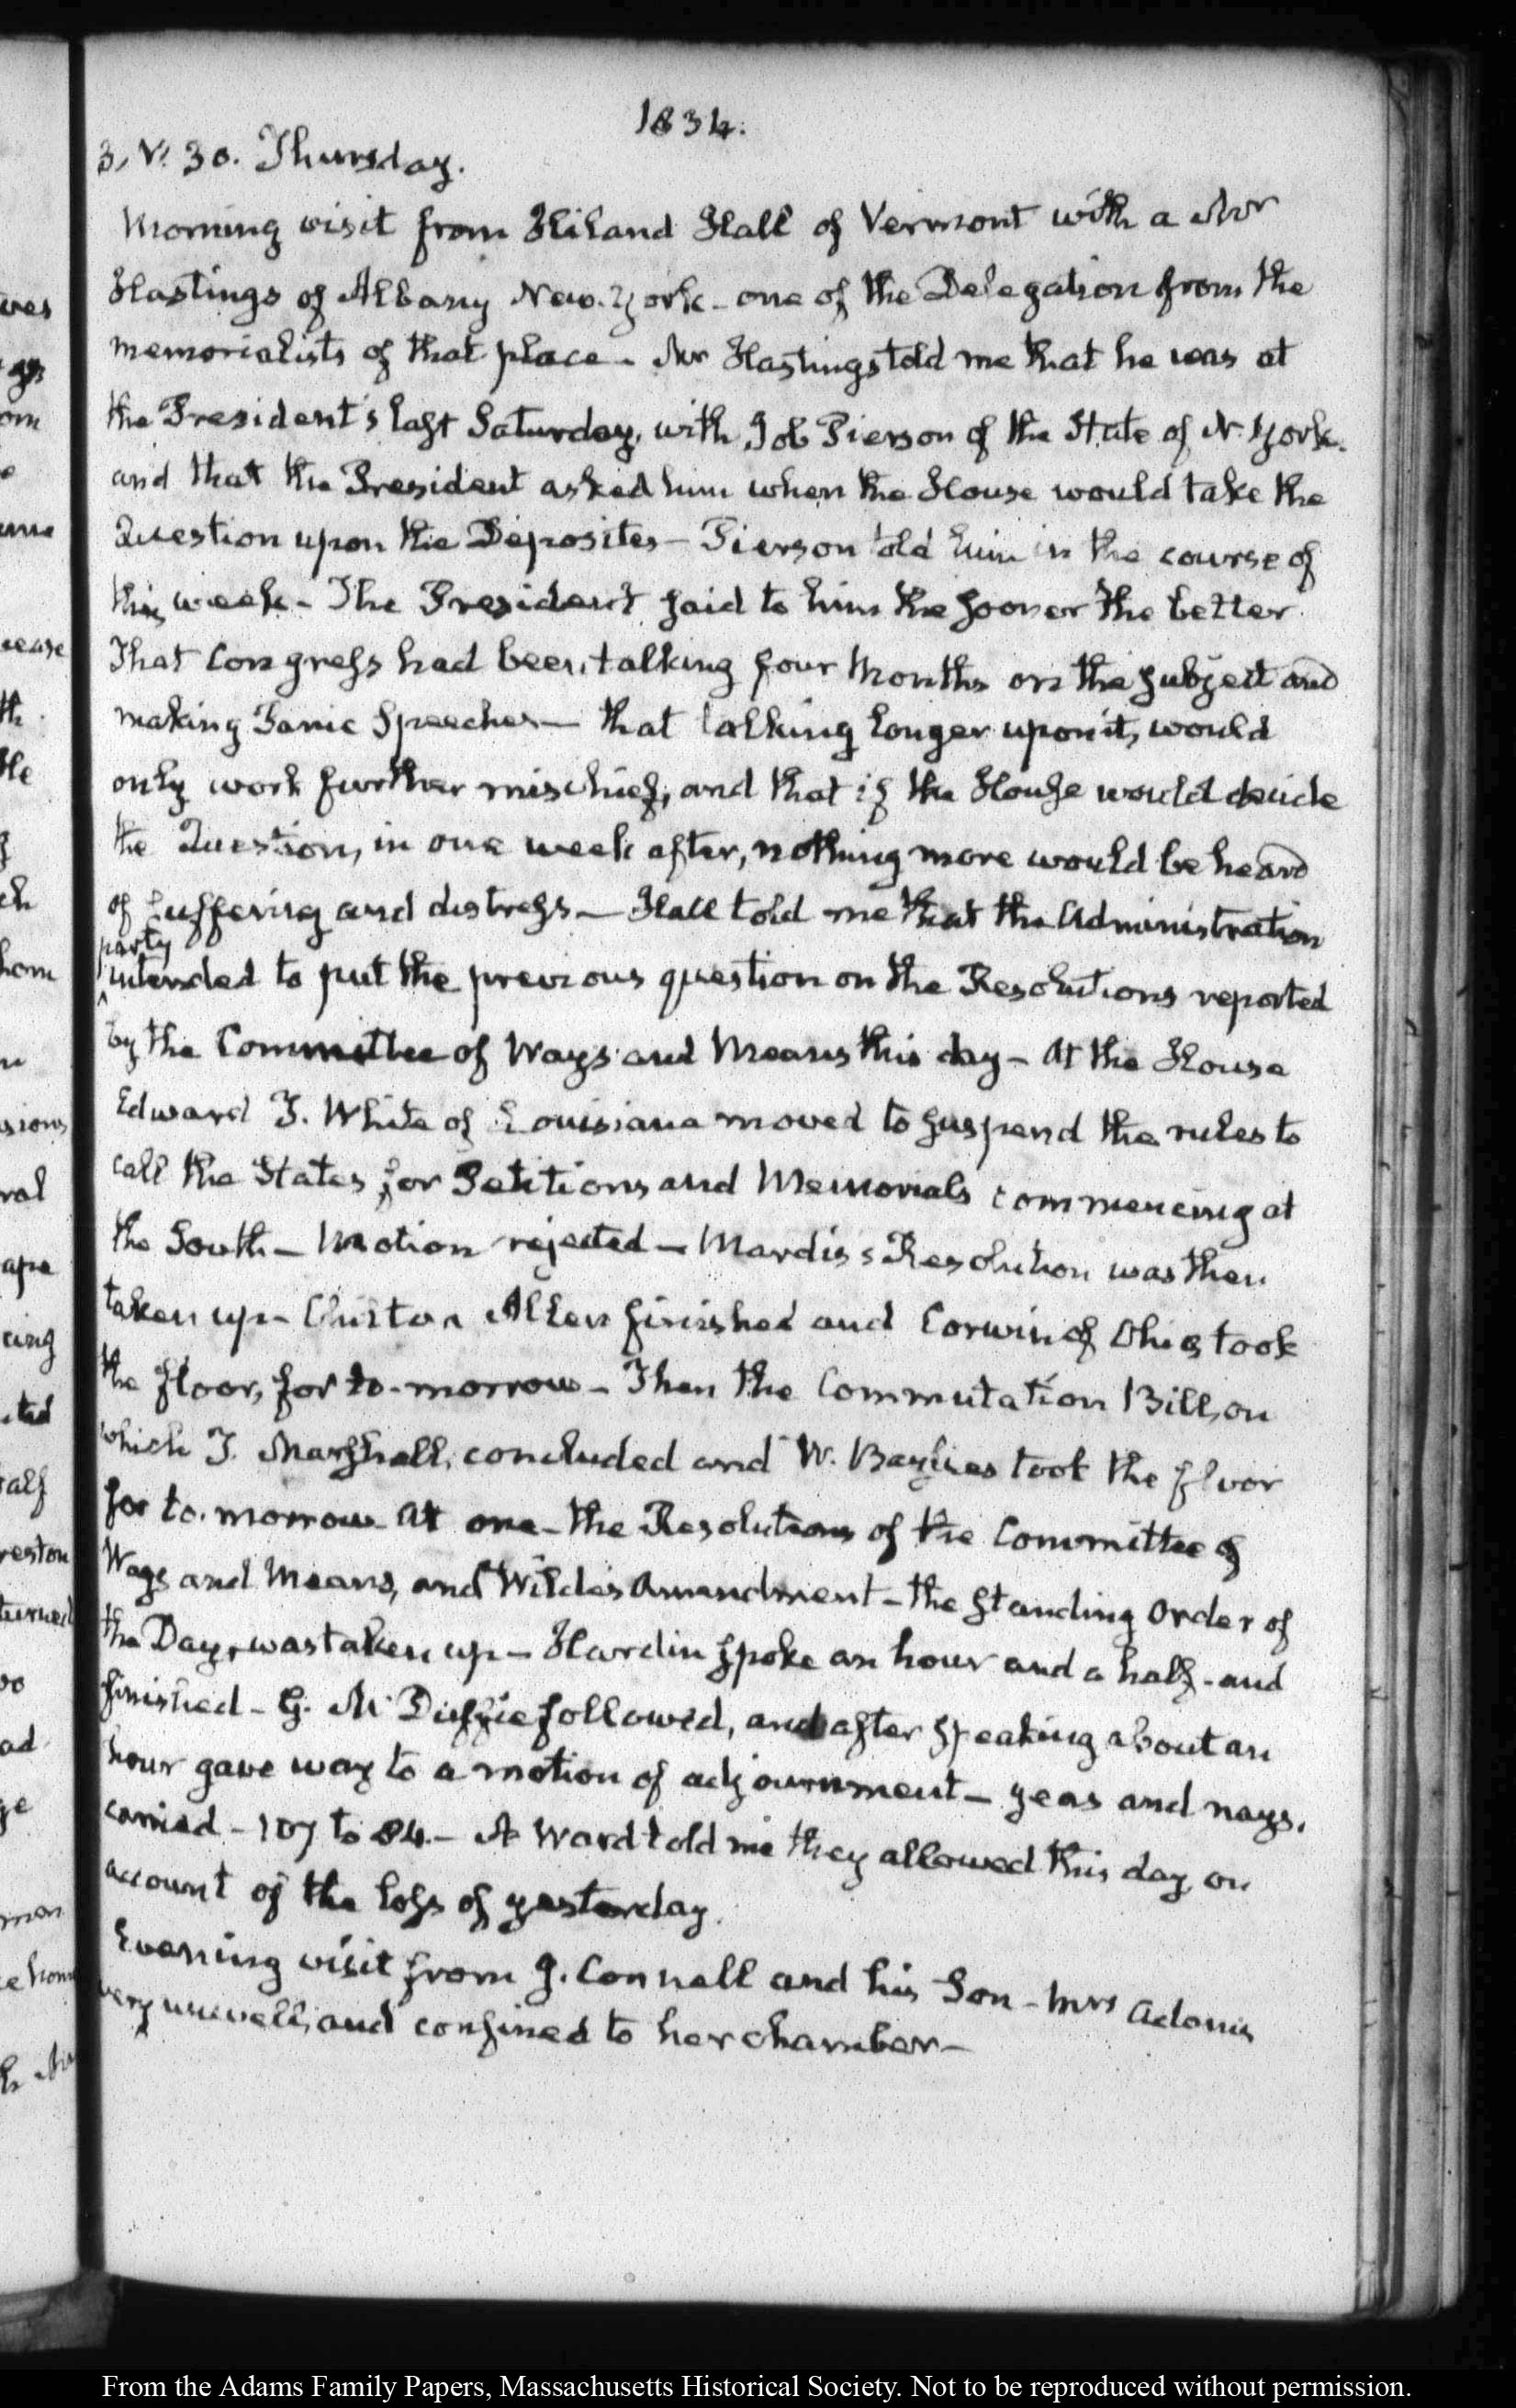 1834.
3. V. 30. Thursday.
Morning visit from Hiland Hall of Vermont with a Mr
Hastings of Albany New-York - one of the Delegation from the
memorialists of that place - Mr Hastings told me that he was at
the President's last Saturday, with Job Pierson of the State of N. York.
and that the President asked him when the House would take the
Question upon the Deposites - Pierson told him in the course of
this week - The President said to him the sooner the better.
That Congress had been talking four Months on the subject and
making Panic Speeches - that talking longer upon it, would
only work further mischief, and that if the House would decide
the Question, in one week after, nothing more would be heard
of suffering and distress - Hall told me that the Administration
party
intended to put the previous question on the Resolutions reported
by the Committee of Ways and Means this day - At the House
Edward D. White of Louisiana moved to suspend the rules to
call the States for Petitions and Memorials commencing at
the South - Motion rejected - Mardis's Resolution was then
taken up - Chilton Allen finished and Corwin of Ohio, took
the floor, for to-morrow - Then the Commutation Bill, on
which T. Marshall, concluded and W. Baylies took the floor
for to-morrow - At one - the Resolutions of the Committee of
Ways and Means, and Wilde's Amendment - the standing Order of
the Day, was taken up - Hardin spoke an hour and a half - and
finished - G. McDuffie followed, and after speaking about an
hour gave way to a motion of adjournment - yeas and nays.
carried - 107 to 84 - A Ward told me they allowed this day on
account of the loss of yesterday.
Evening visit from J. Connell and his Son - Mrs Adams
very unwell, and confined to her chamber -
ves
om
cease
th
He
ch
hom
sions
ral
ape
cing
cted
half
reston
turned
oo
ad
ge
From the Adams Family Papers, Massachusetts Historical Society. Not to be reproduced without permission.